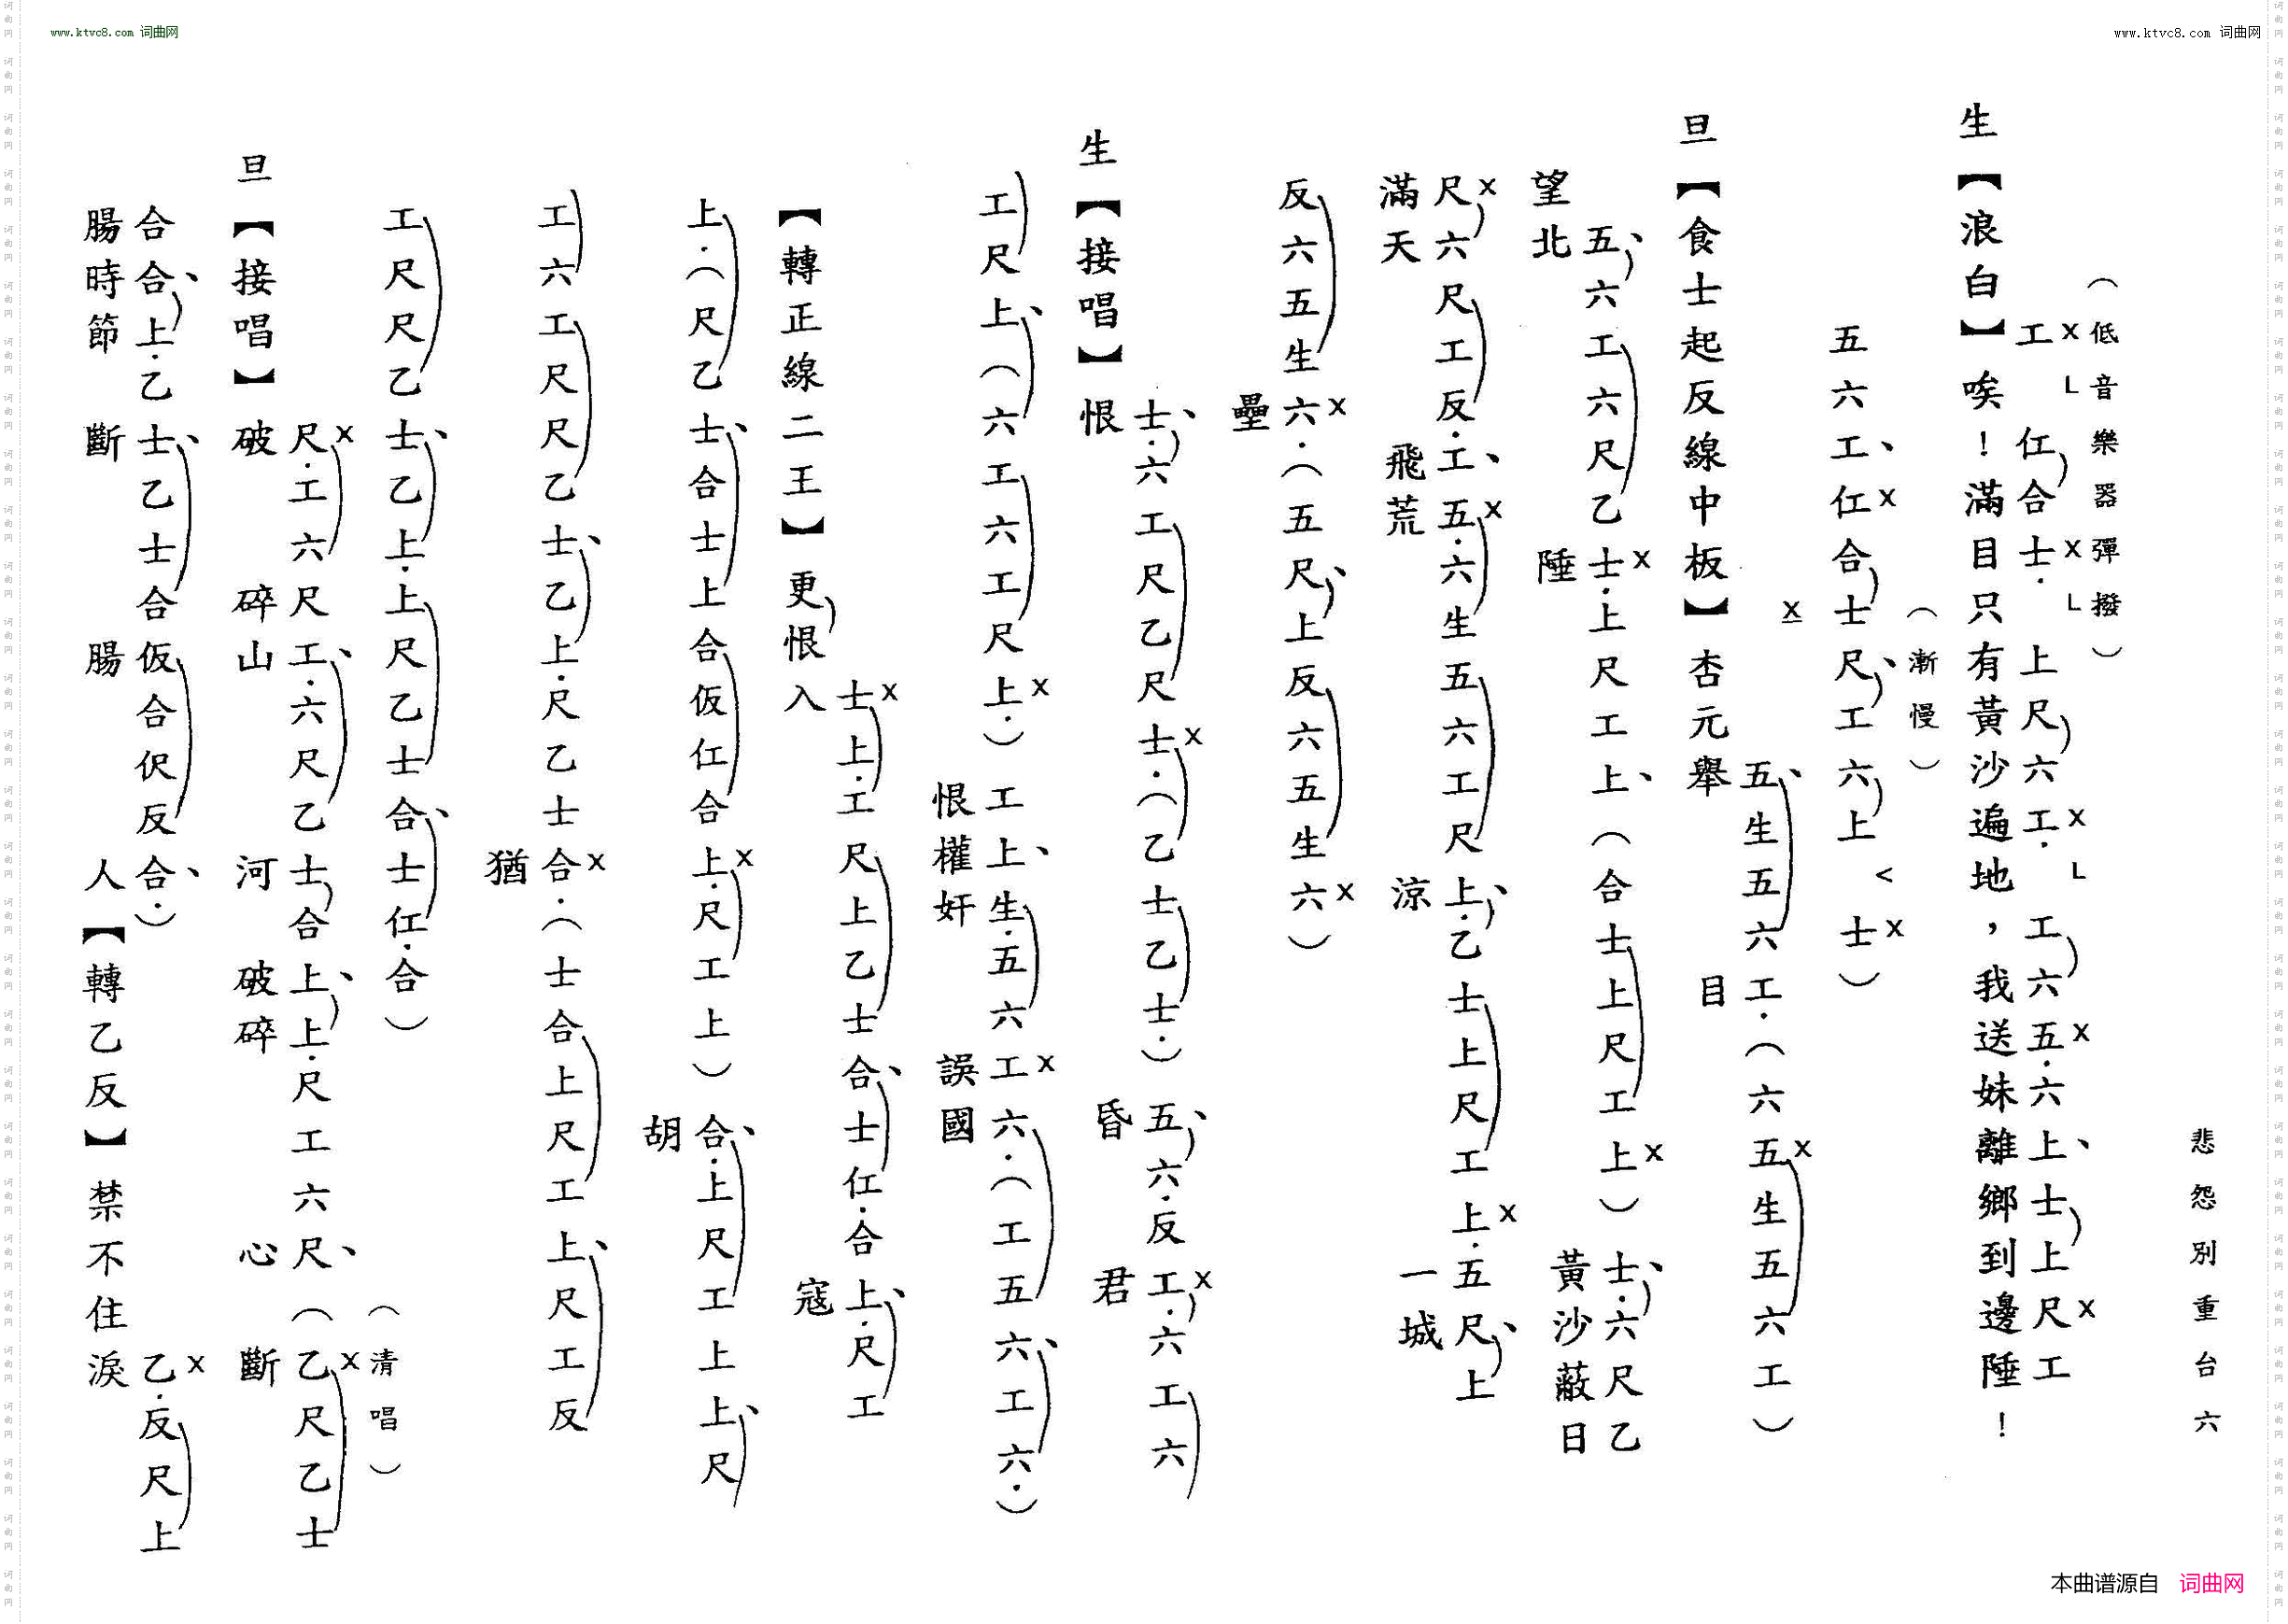 www.ktvc8.com 词曲网
www.ktvc8.com 词曲网
悲怨別重台六
（低音樂器彈撥）
工 X L 仜合士. X L 上尺六工. X L 工六五. X 六上、士上尺 X 工
生【浪白】唉！滿目只有黃沙遍地，我送妹離鄉到邊陲！
（漸慢）
五六工、仜 X 合士 X 尺、工六上 < 士 X ）
五、生五六工.（六五 X 生五六工）
旦【食士起反線中板】杏元舉目
五、六工六尺乙士. X 上尺工上、（合士上尺工上 X ）士.、六尺乙
望北陲黃沙蔽日
尺 X 六尺工反.工、五. X 六生五六工尺上.、乙士上尺工上. X 五尺、上
滿天飛荒涼一城
反六五生六. X （五尺、上反六五生六 X ）
壘
士.、六工尺乙尺士. X （乙士乙士.）五、六.反工. X 六工六
生【接唱】恨昏君
工尺上、（六工六工尺上. X ）工上、生.五六工 X 六.（工五六、工六.）
恨權奸誤國
士 X 上.工尺上乙士合、士仜.合上.、尺工
【轉正線二王】更恨入寇
上.（尺乙士、合士上合仮仜合上. X 尺工上）合.、上尺工上上、尺
胡
工六工尺尺乙士、乙上.尺乙士合. X （士合上尺工上、尺工反
猶
工尺尺乙士、乙上.上尺乙士合、士仜.合）
（清唱）
尺. X 工六尺工.、六尺乙士合上、上.尺工六尺、（乙 X 尺乙士
旦【接唱】破碎山河破碎心斷
合合、上.乙士、乙士合仮合伬反合.、）乙. X 反尺上
腸時節斷腸人【轉乙反】禁不住淚
本曲谱源自 词曲网